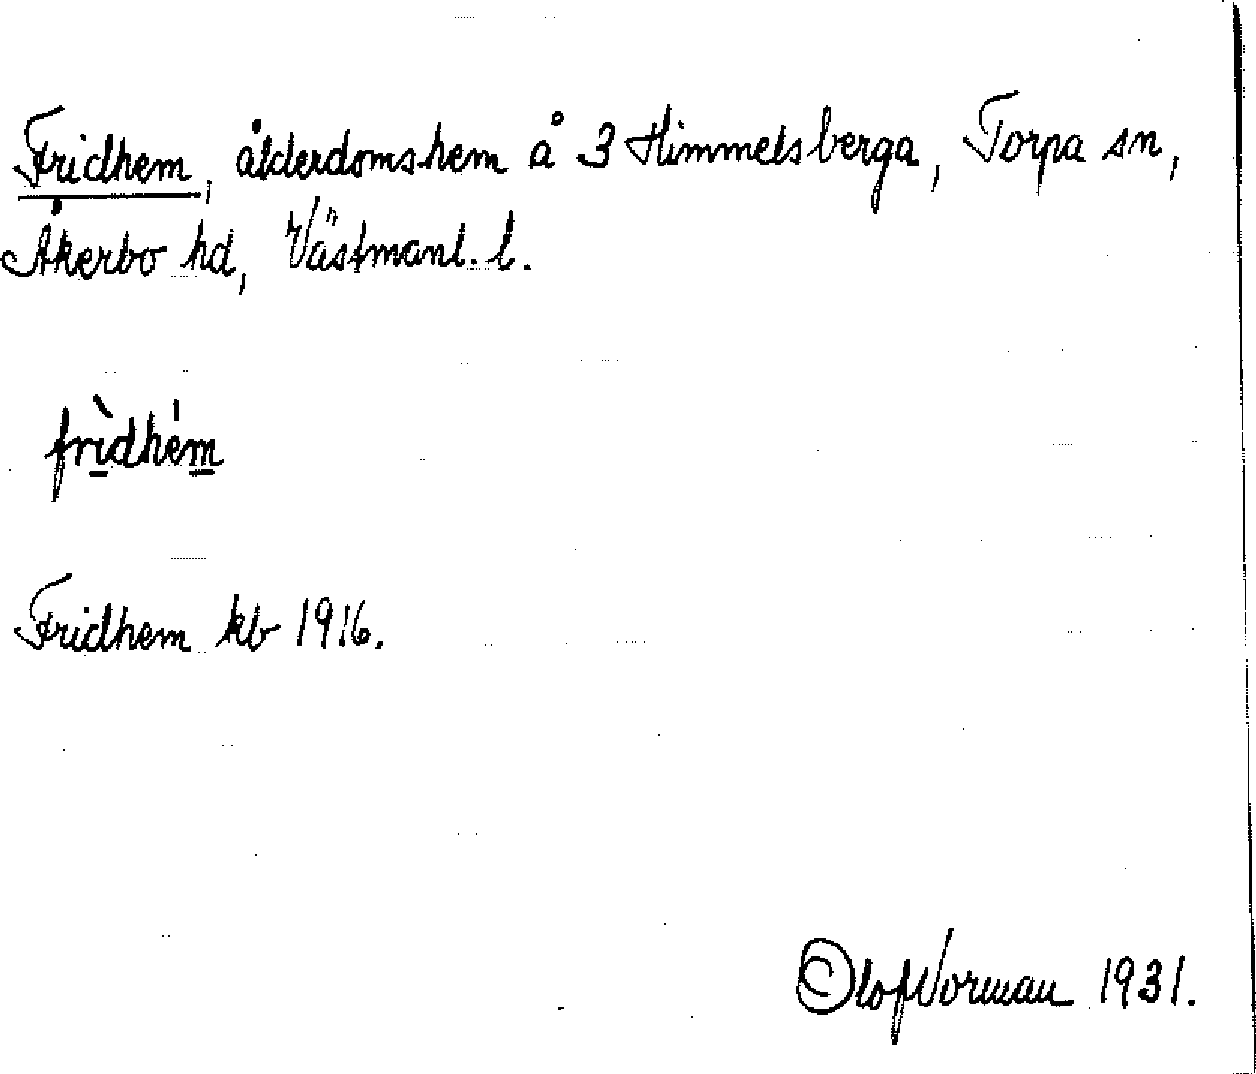 Fridhem, ålderdomshem å 3 Himmelsberga, Torpa sn,
Åkerbo hd, Västmanl. l.
frìdhém
Fridhem kb 1916.
Olof Norman 1931.